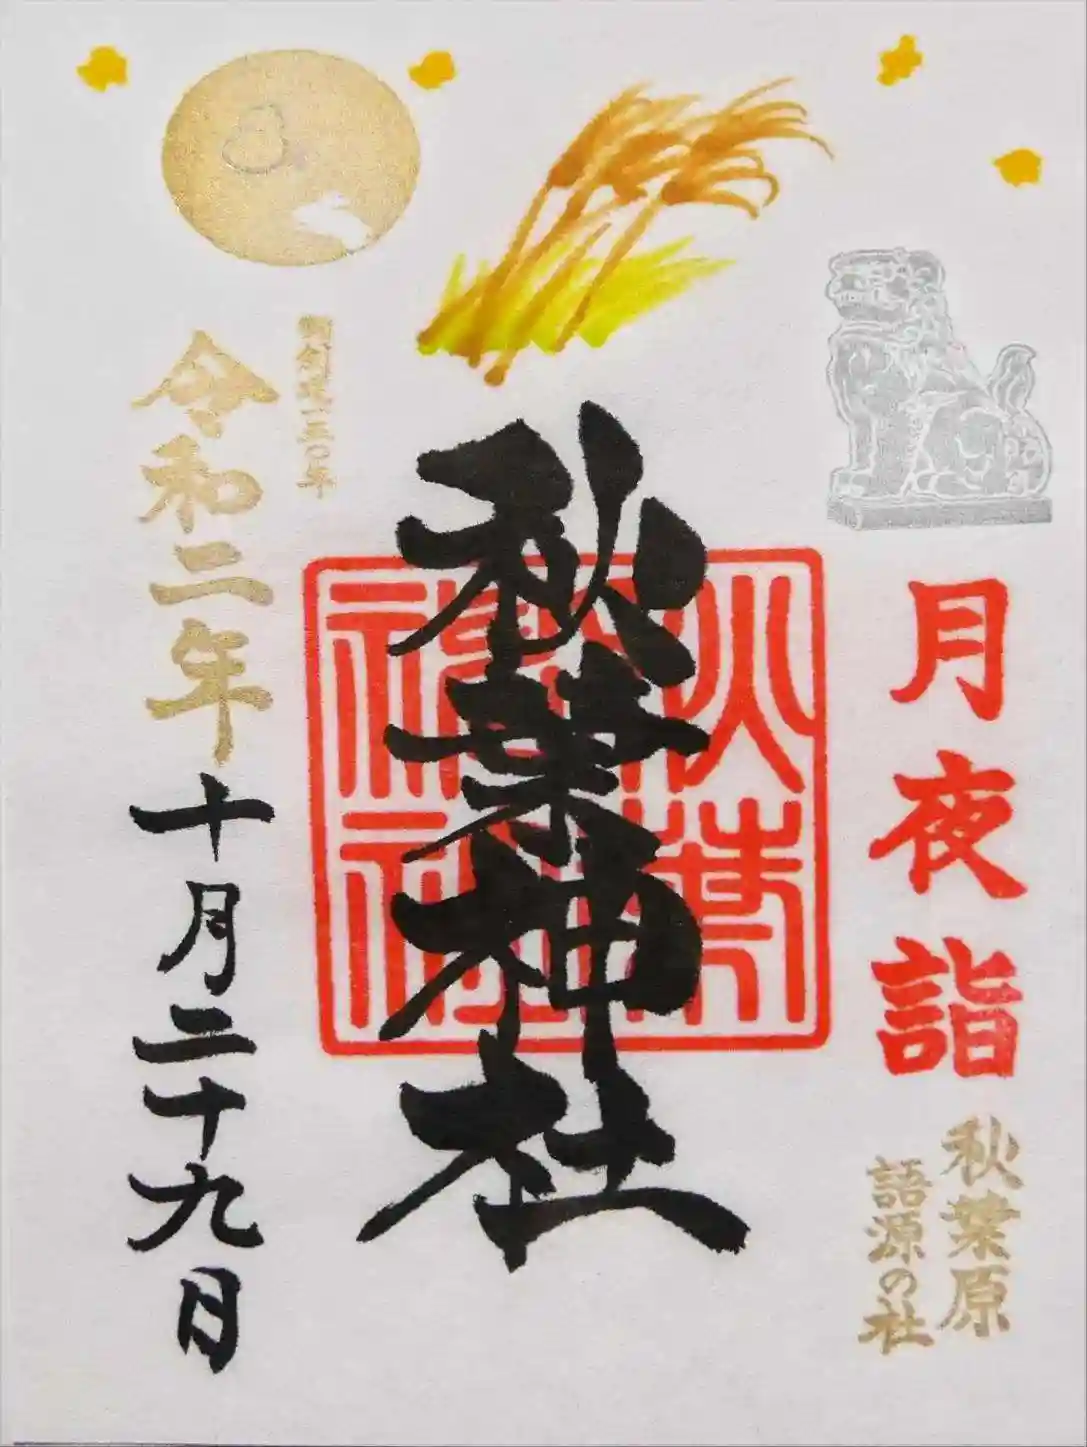 月夜詣
秋葉原
語源の社
秋葉神社
秋葉神社
令和二年十月二十九日